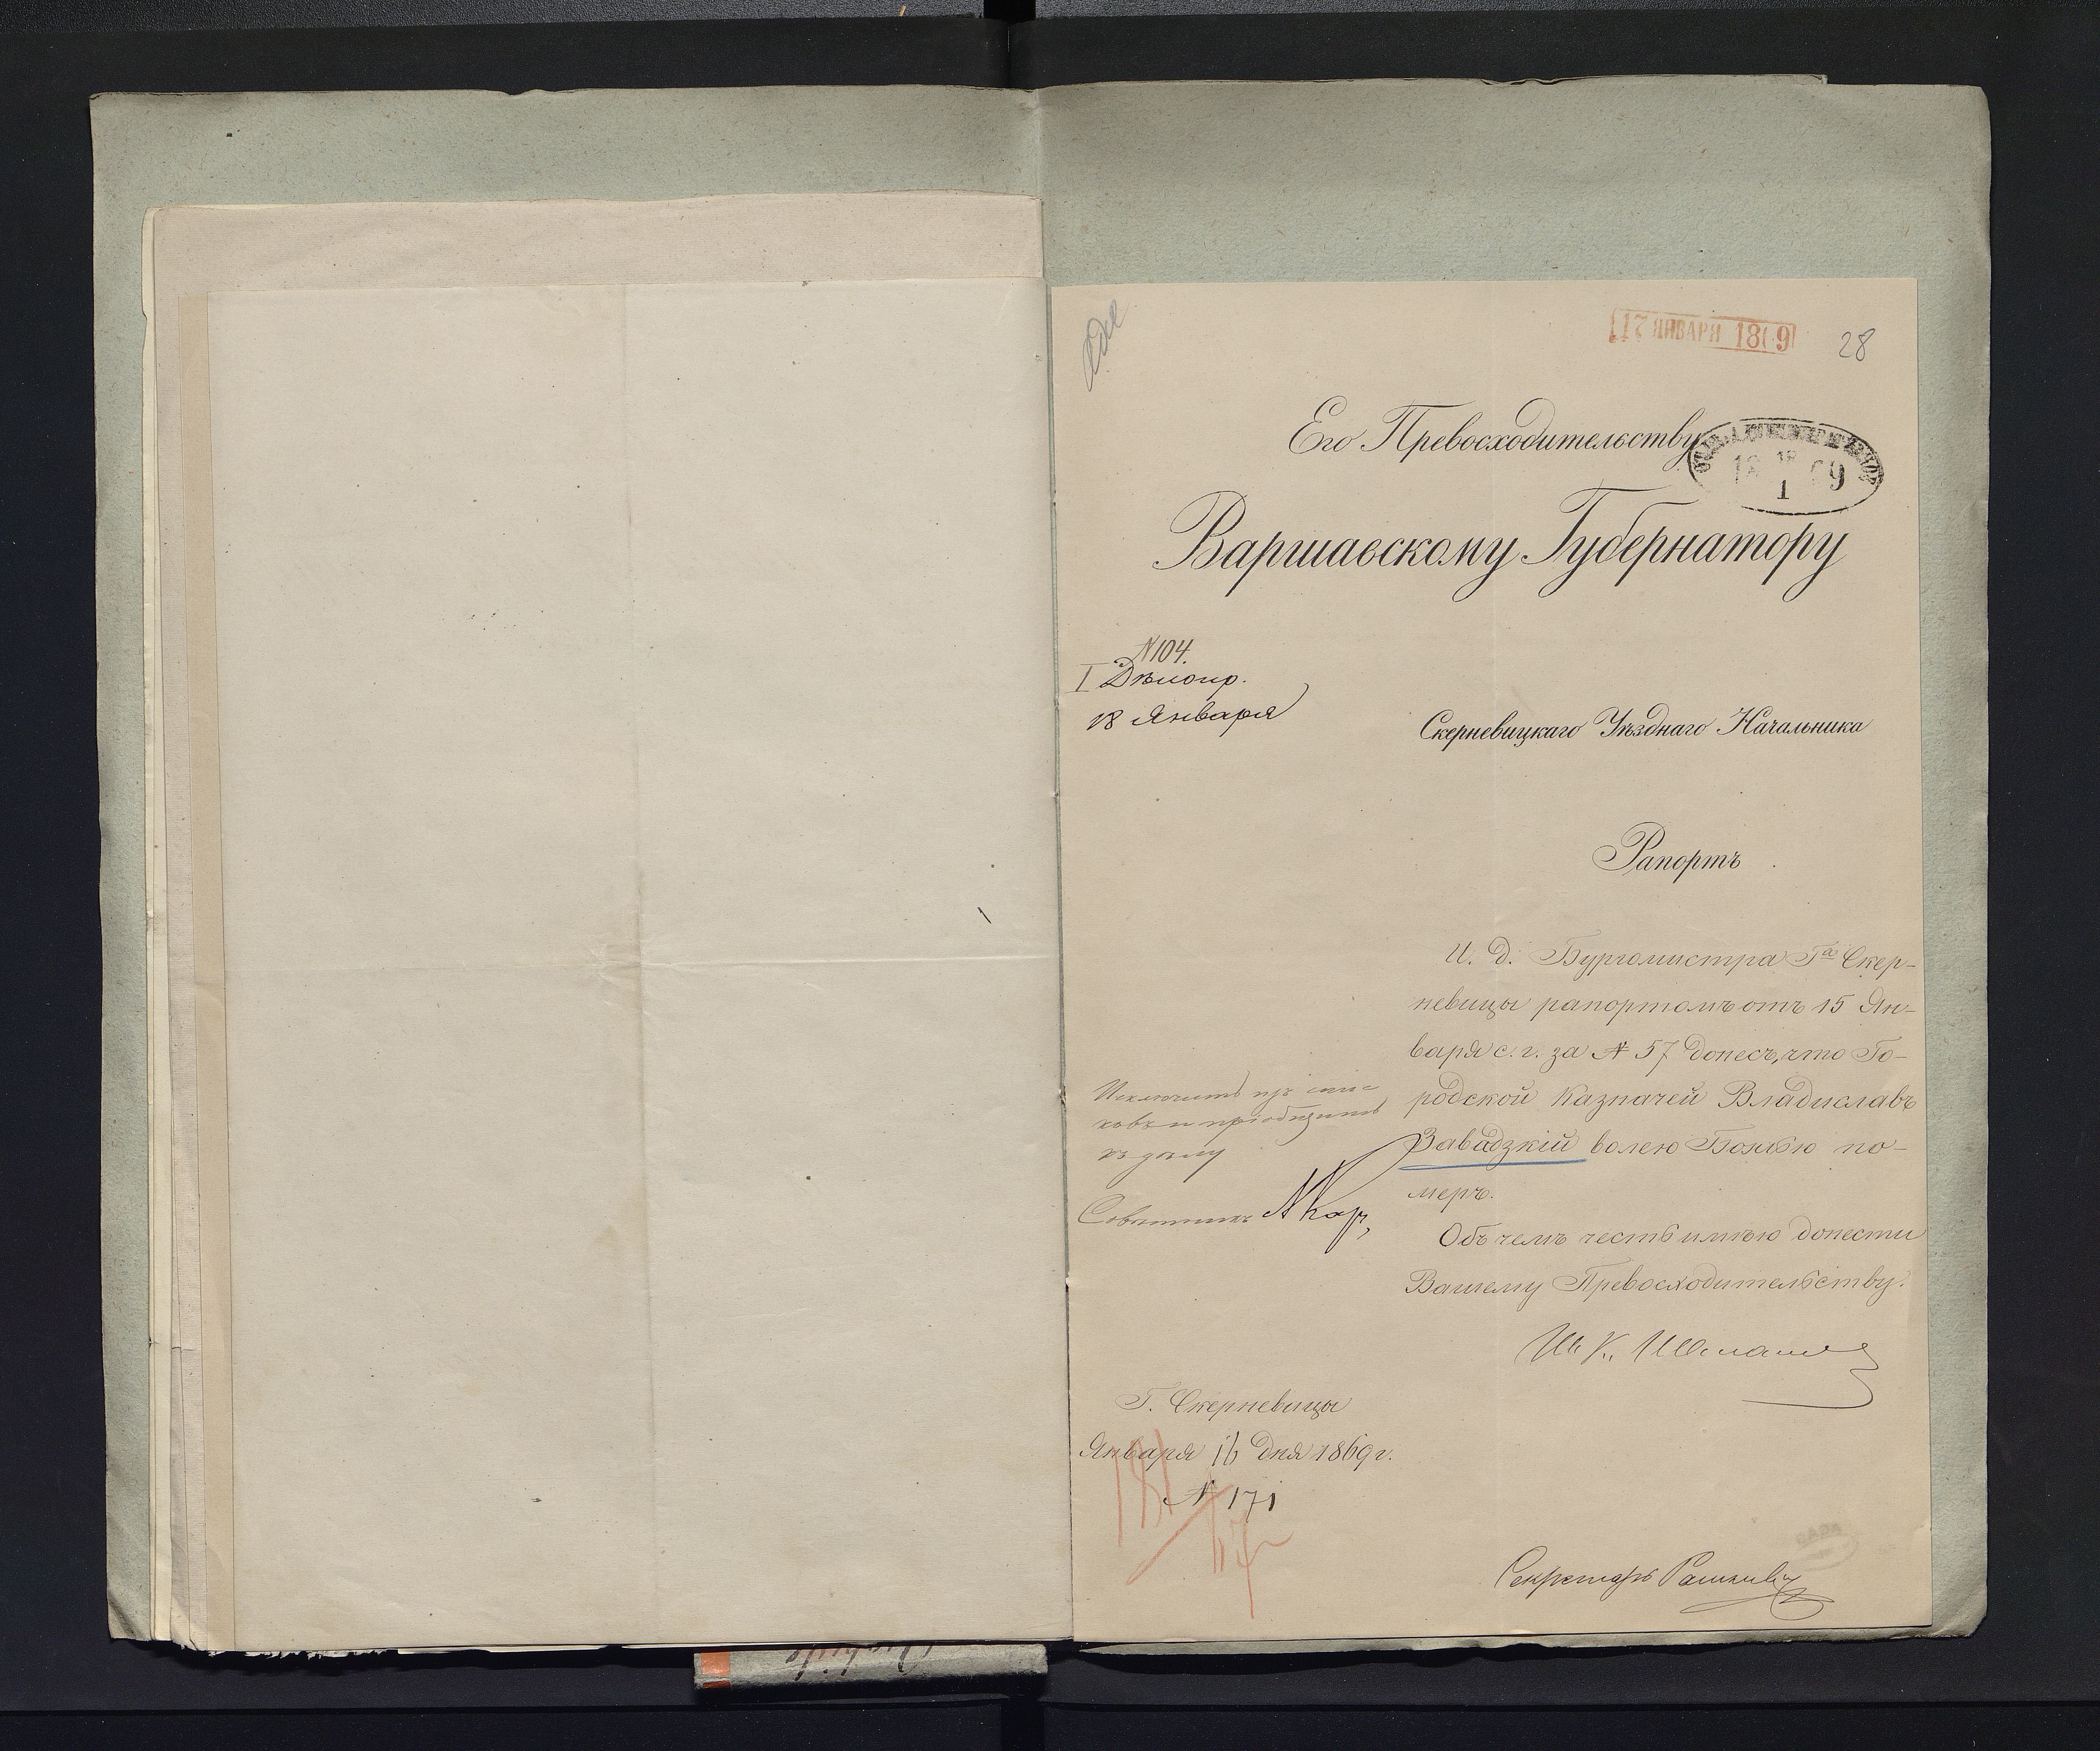 17 ЯНВАРЯ 1869
28
Его Превосходительству
1869
18
1
Варшавскому Губернатору
N 104.
I Дѣлопр.
18 Января
Скерневицкаго Уѣзднаго Начальника
Рапортъ
И. д. Бургомистра Гᵃ Скер-
невицы рапортомъ отъ 15 Ян-
варя с. г. за № 57 донесъ, что Го-
родской Казначей Владиславъ
Завадзкій волею Божьею по-
меръ.
Объ чемъ честь имѣю донести
Вашему Превосходительству.
Исключить изъ спис-
ковъ и пріобщить
къ дѣлу
Совѣтникъ
Г. Скерневицы
Января 16 дня 1869 г.
№ 171
Секретарь